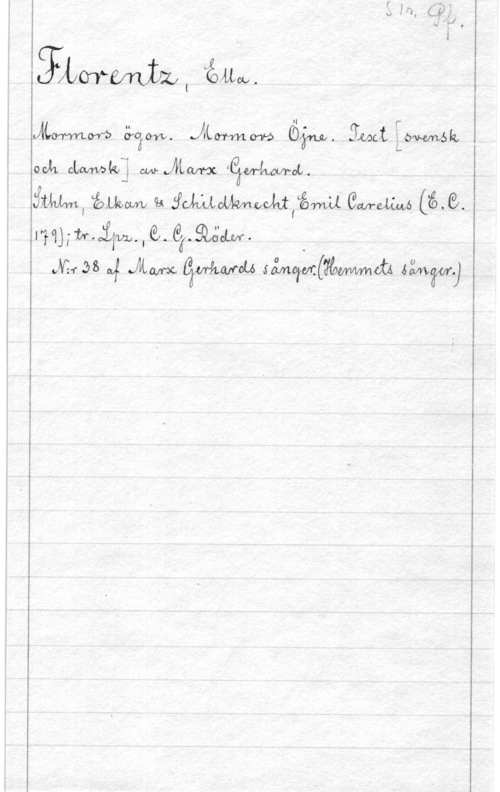 S 1 n, Pf.
Florentz, Ella.
Mormors ögon. Mormors Öjne. Text [svensk
och dansk] av Marx Gerhard.
Sthlm, Elkan & Schildknecht, Emil Carelius (E. C.
179); tr. Lpz., C. G. Röder.
N:r 38 af Marx Gerhards sånger. (Hemmets sånger.)